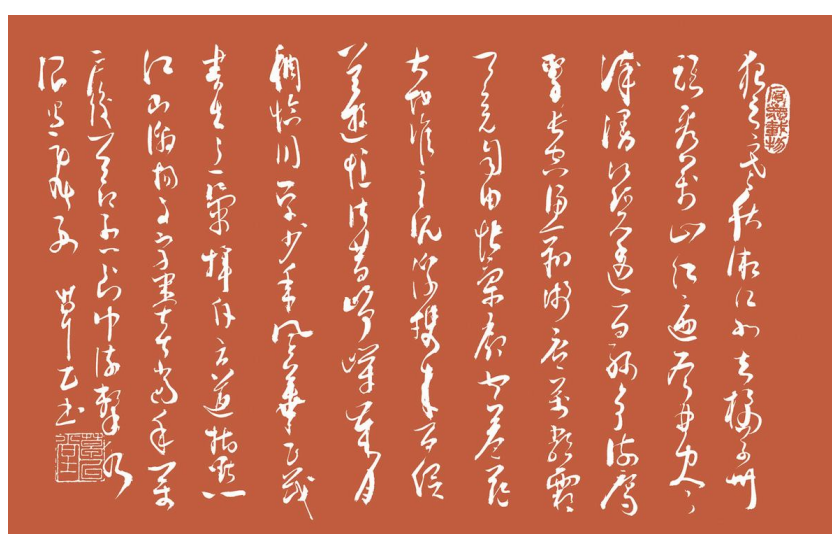 厚德载物
独立寒秋湘江北去橘子洲
头看万山红遍层林尽染
漫江碧透百舸争流鹰
击长空鱼翔浅底万类霜
天竞自由怅寥廓问苍茫
大地谁主沉浮携来百侣
曾游忆往昔峥嵘岁月
稠恰同学少年风华正茂
书生意气挥斥方遒指点
江山激扬文字粪土当年万
户侯曾记否到中流击水
浪遏飞舟